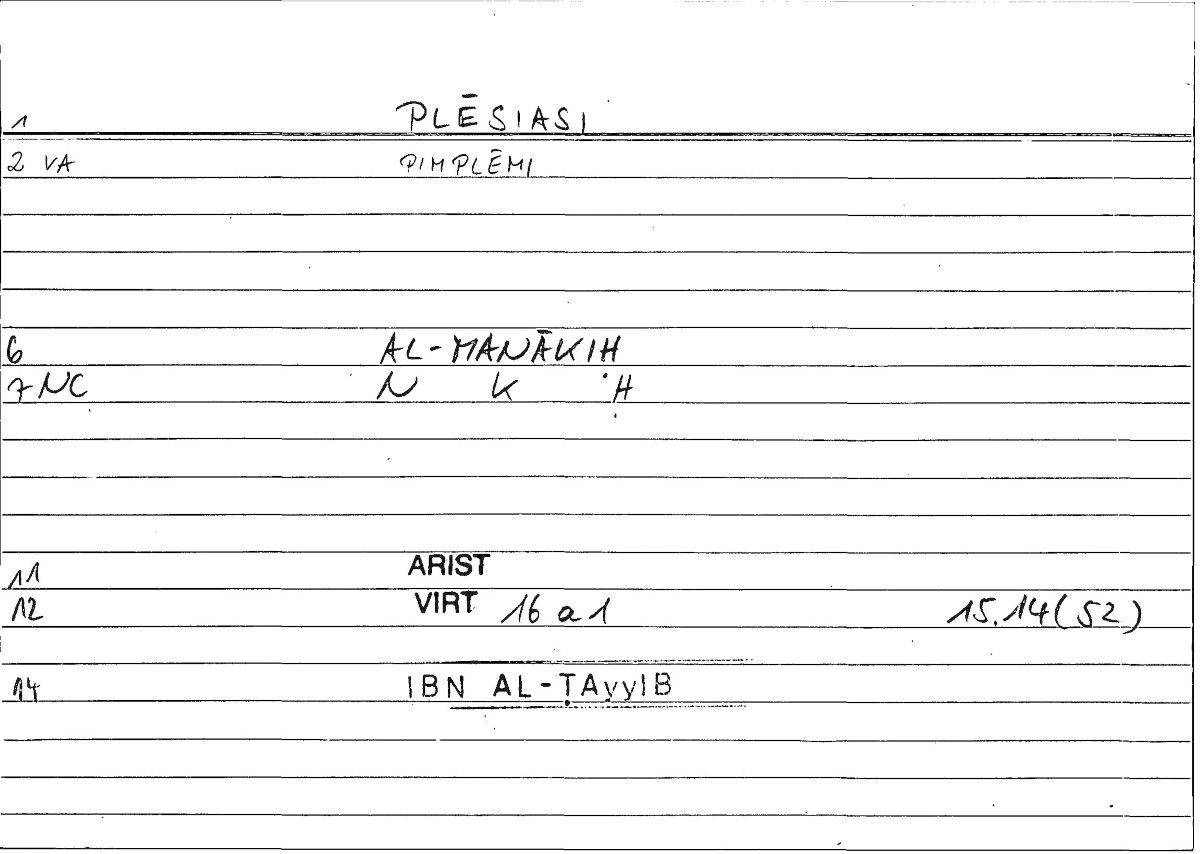 1 PLĒSIASI
2 VA PIMPLĒMI
6 AL-MANĀKIH
7 NC N K Ḥ
11 ARIST
12 VIRT 16 a 1 15.14(52)
14 IBN AL-ṬAyyIB